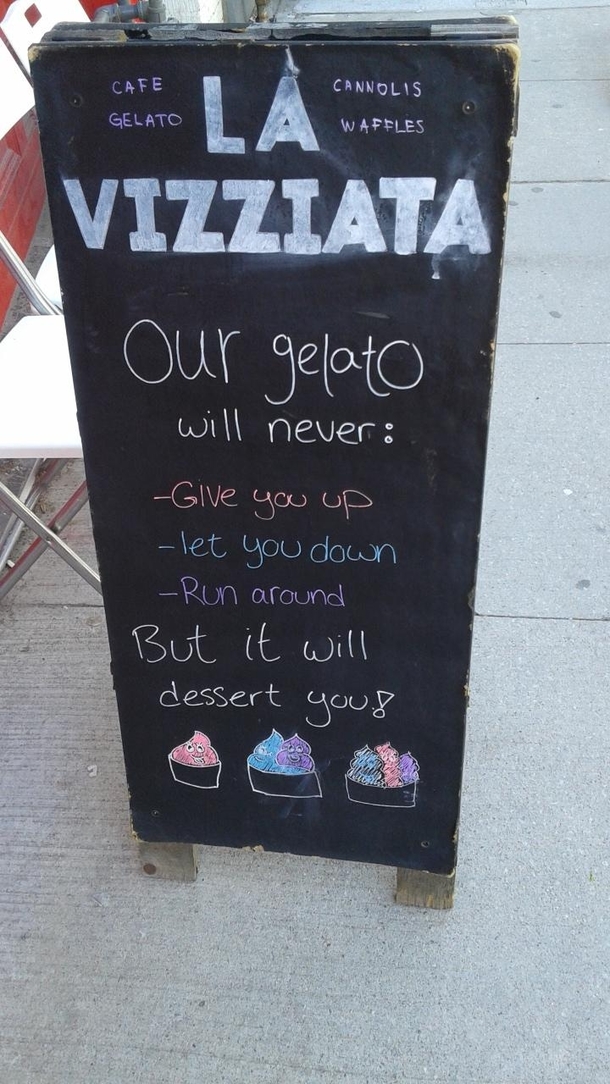 CAFE
GELATO
LA
CANNOLIS
WAFFLES
VIZZIATA
Our gelato
will never:
-Give you up
-let you down
-Run around
But it will
dessert you!